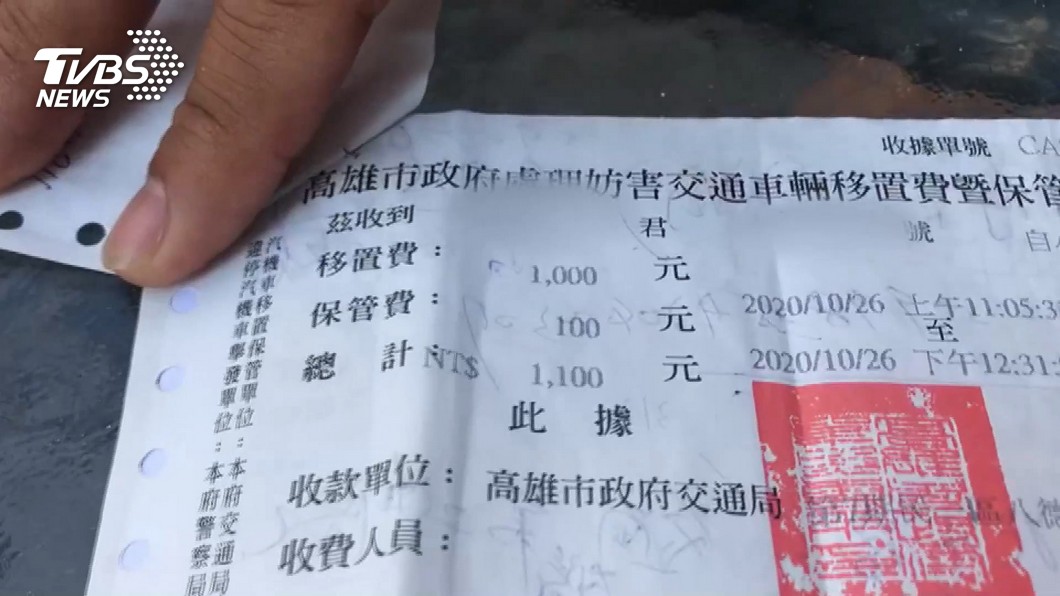 TVBS
NEWS
收據單號 CA
高雄市政府處理妨害交通車輛移置費暨保管
茲收到 君 號
移置費： 1,000 元
保管費： 100 元 2020/10/26 上午11:05:3
至
總計：NT$ 1,100 元 2020/10/26 下午12:31:
此據
收款單位：高雄市政府交通局
收費人員：
汽機車移置保管單位：本府交通局
違停汽機車舉發單位：本府警察局